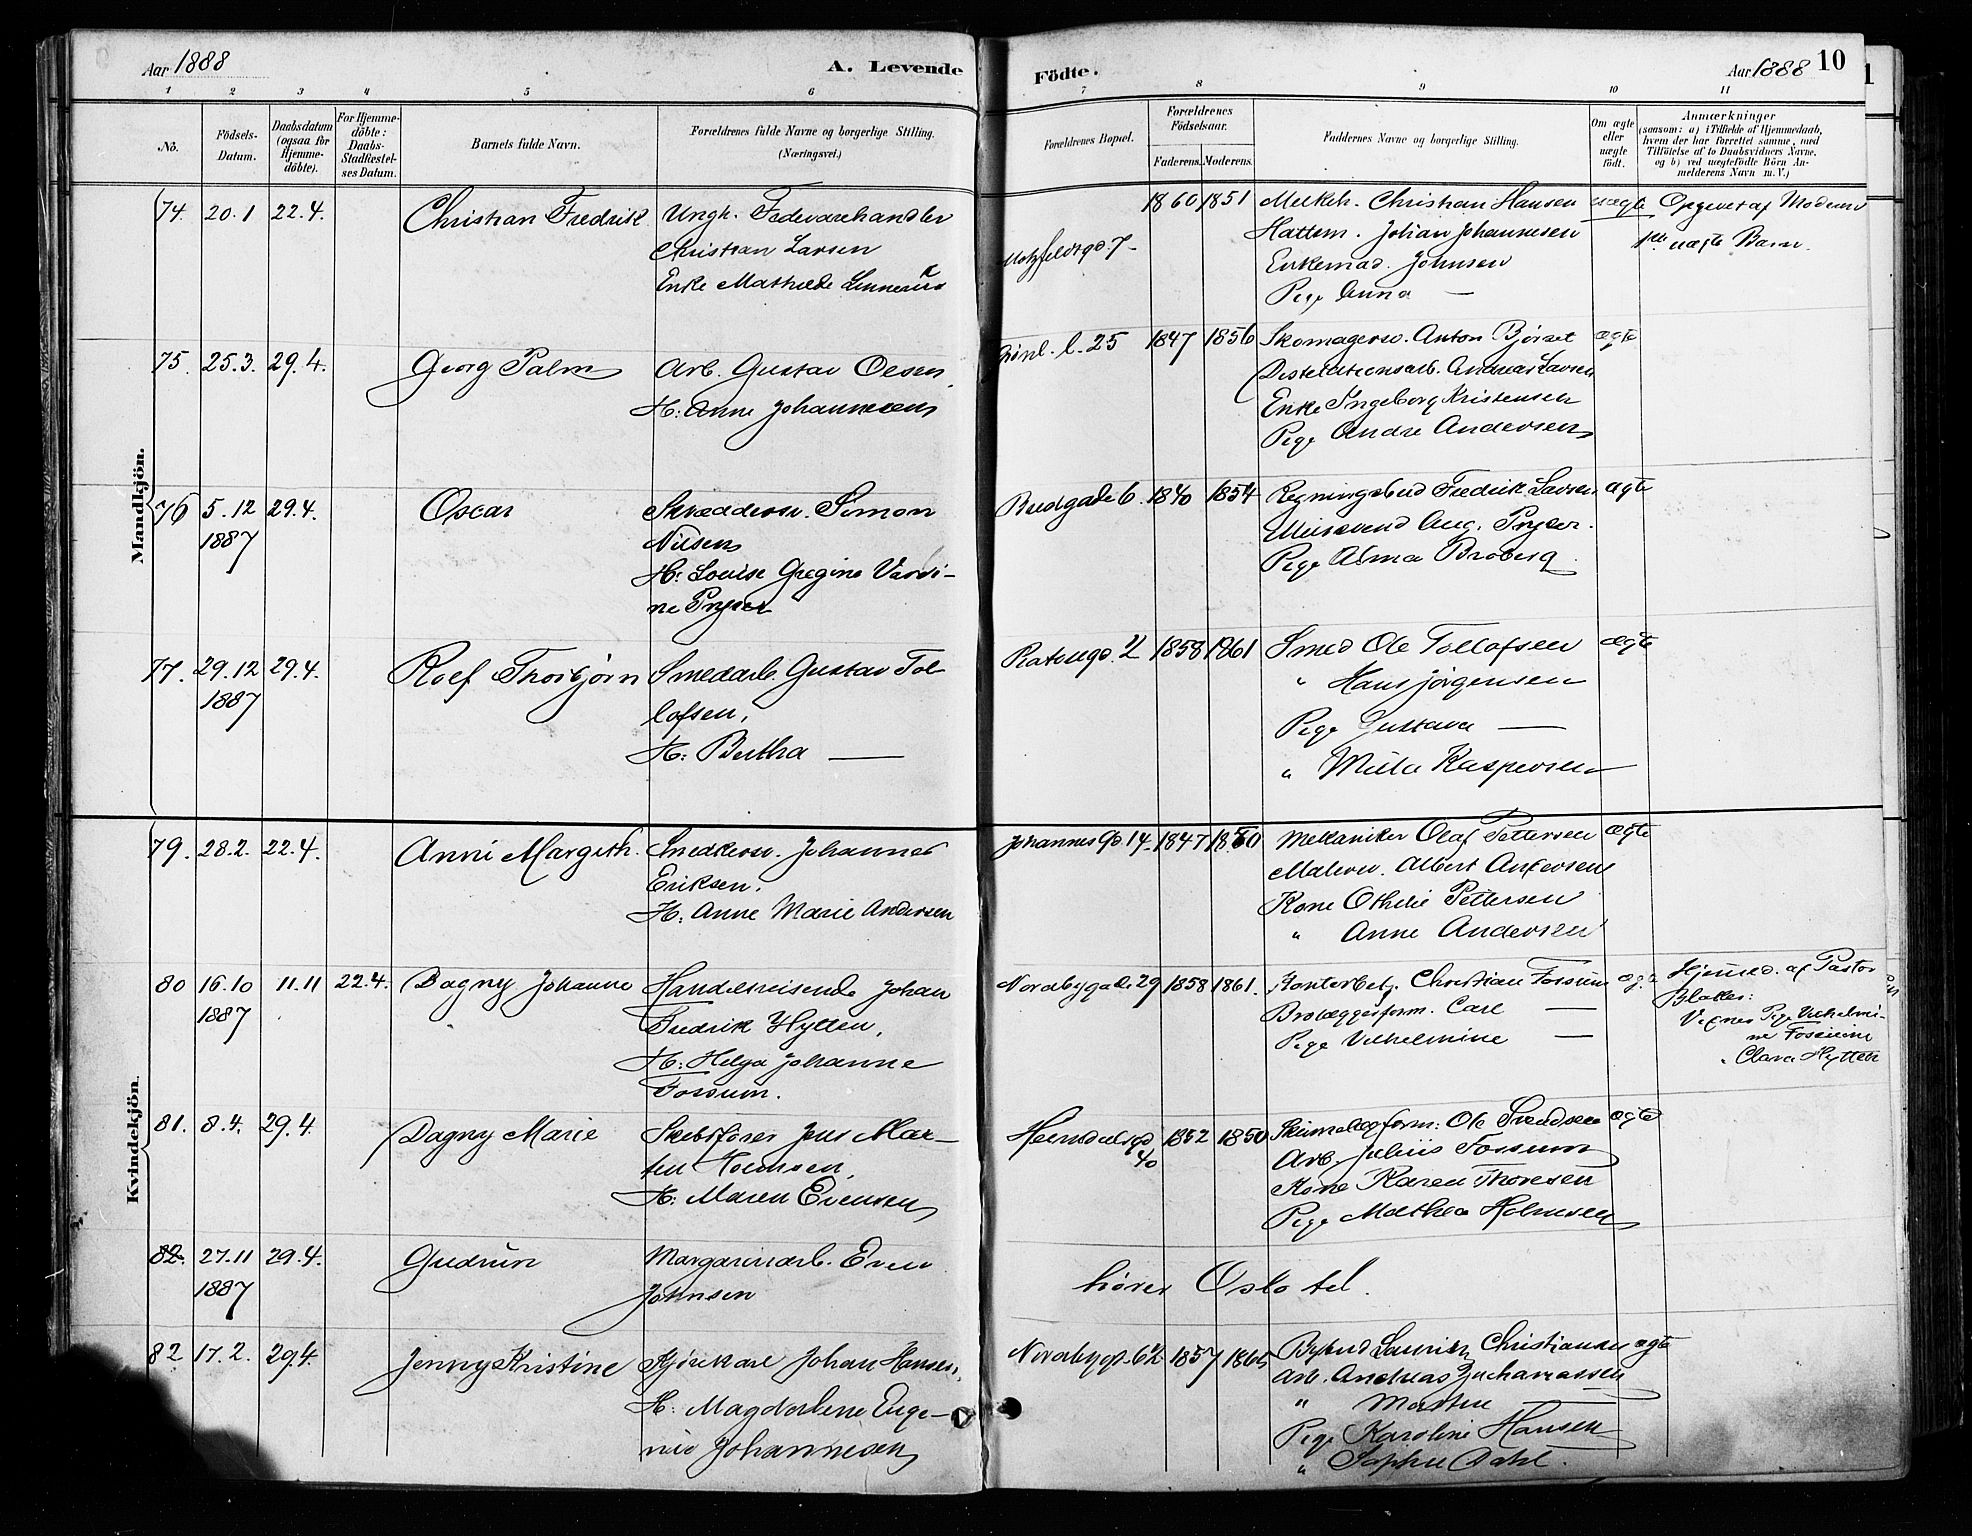 Aar 1888
A. Levende
Födte.
Aar 1888
10
1
1 2 3 4 5 6 7 8 9 10 11
No.
Födsels-Datum.
Daabsdatum (ogsaa for Hjemme-döbte).
For Hjemme-döbte: Daabs-Stadfæstel-ses Datum.
Barnets fulde Navn.
Forældrenes fulde Navne og borgerlige Stilling. (Næringsvei.)
Forældrenes Bopæl.
Forældrenes Födselsaar.
Faderens. Moderens.
Faddernes Navne og borgerlige Stilling.
Om ægte eller uægte födt.
Anmærkninger
(saasom: a) i Tilfælde af Hjemmedaab, hvem der har forrettet samme, med Tilföielse af to Daabsvidners Navne, og b) ved uægtefödte Börn An-melderens Navn m. V.)
Mandkjön.
74. 20.1 22.4. Christian Fredrik Ungk. Fedevarehandler
Christian Larsen
Enke Mathilde
Motzfeldtsgd. 7
1860 1851 Melkeh. Christian Hansen uægte Opgivet af Moderen
Hattem. Johan Johannesen 1ste uægte Barn.
Enkemad. Johnsen
Pige Anna —
75. 25.3. 29.4. Georg Palm Arb. Gustav Olsen,
H: Anne Johannesen
Grønl. l. 25 1847 1856 Skomagersv. Anton Bjørset ægte
Destillationsarb. Andreas Larsen
Enke Ingeborg Kristensen
Pige Andre Andersen
76 5.12 29.4. Oscar Skræddersv. Simon
1887 Nilsen
H: Louise Gregine Varvi-
ne Pryser
Bredgade 6. 1840 1854 Regningsbud Fredrik Larsen ægte
Aug. Pryser.
Pige Alma Broberg.
77. 29.12 29.4. Rolf Thorbjørn Smedarb. Gustav Tol
1887 lofsen,
H: Bertha —
Platougd. 2 1858 1861 Smed Ole Tollofsen ægte
" Hans Jörgensen
Pige Gustava —
" Milla Kaspersen
Kvindekjön.
79. 28.2. 22.4. Anni Margith. Snedkersv. Johannes
Eriksen.
H: Anne Marie Andersen
Johannesgd. 14. 1847 1850 Mekaniker Olaf Pettersen ægte
Malersv. Albert Andersen
Kone Othilie Pettersen
" Anne Andersen
80 16.10 11.11 22.4. Dagny Johanne Handelsreisende Johan
1887 Fredrik Hytten,
H: Helga Johanne
Fossum.
Nordbygd. 29 1858 1861. Kontorbetj. Christian Fossum Hjemmed. af Pastor
Brolæggerform. Carl — Blakker:
Pige Vilhelmine — Vidner Pige Vilhelmi-
ne Fossum
" Clara Hytten
81. 8.4. 29.4. Dagny Marie Skibsfører Jens Mar-
tin Holmsen,
H: Maren Evensen
Heimdalsgd 40 1852 1850 Ole Svendsen ægte
Arb. Julius Fossum
Kone Karen Thoresen
Pige Mathea Holmsen
82. 27.11 29.4. Gudrun Margarinarb. Even
1887 Johnsen
hører Oslo til.
82 17.2. 29.4. Jenny Kristine Kjørekarl Johan Hansen,
H: Magdalene Euge-
nie Johannesen
Nordbygd. 62 1857 1865 Bybud Lauritz Christiansen ægte
Arb. Andreas Zachariassen
" Martin —
Pige Karoline Hansen
" Sophie Dahl.